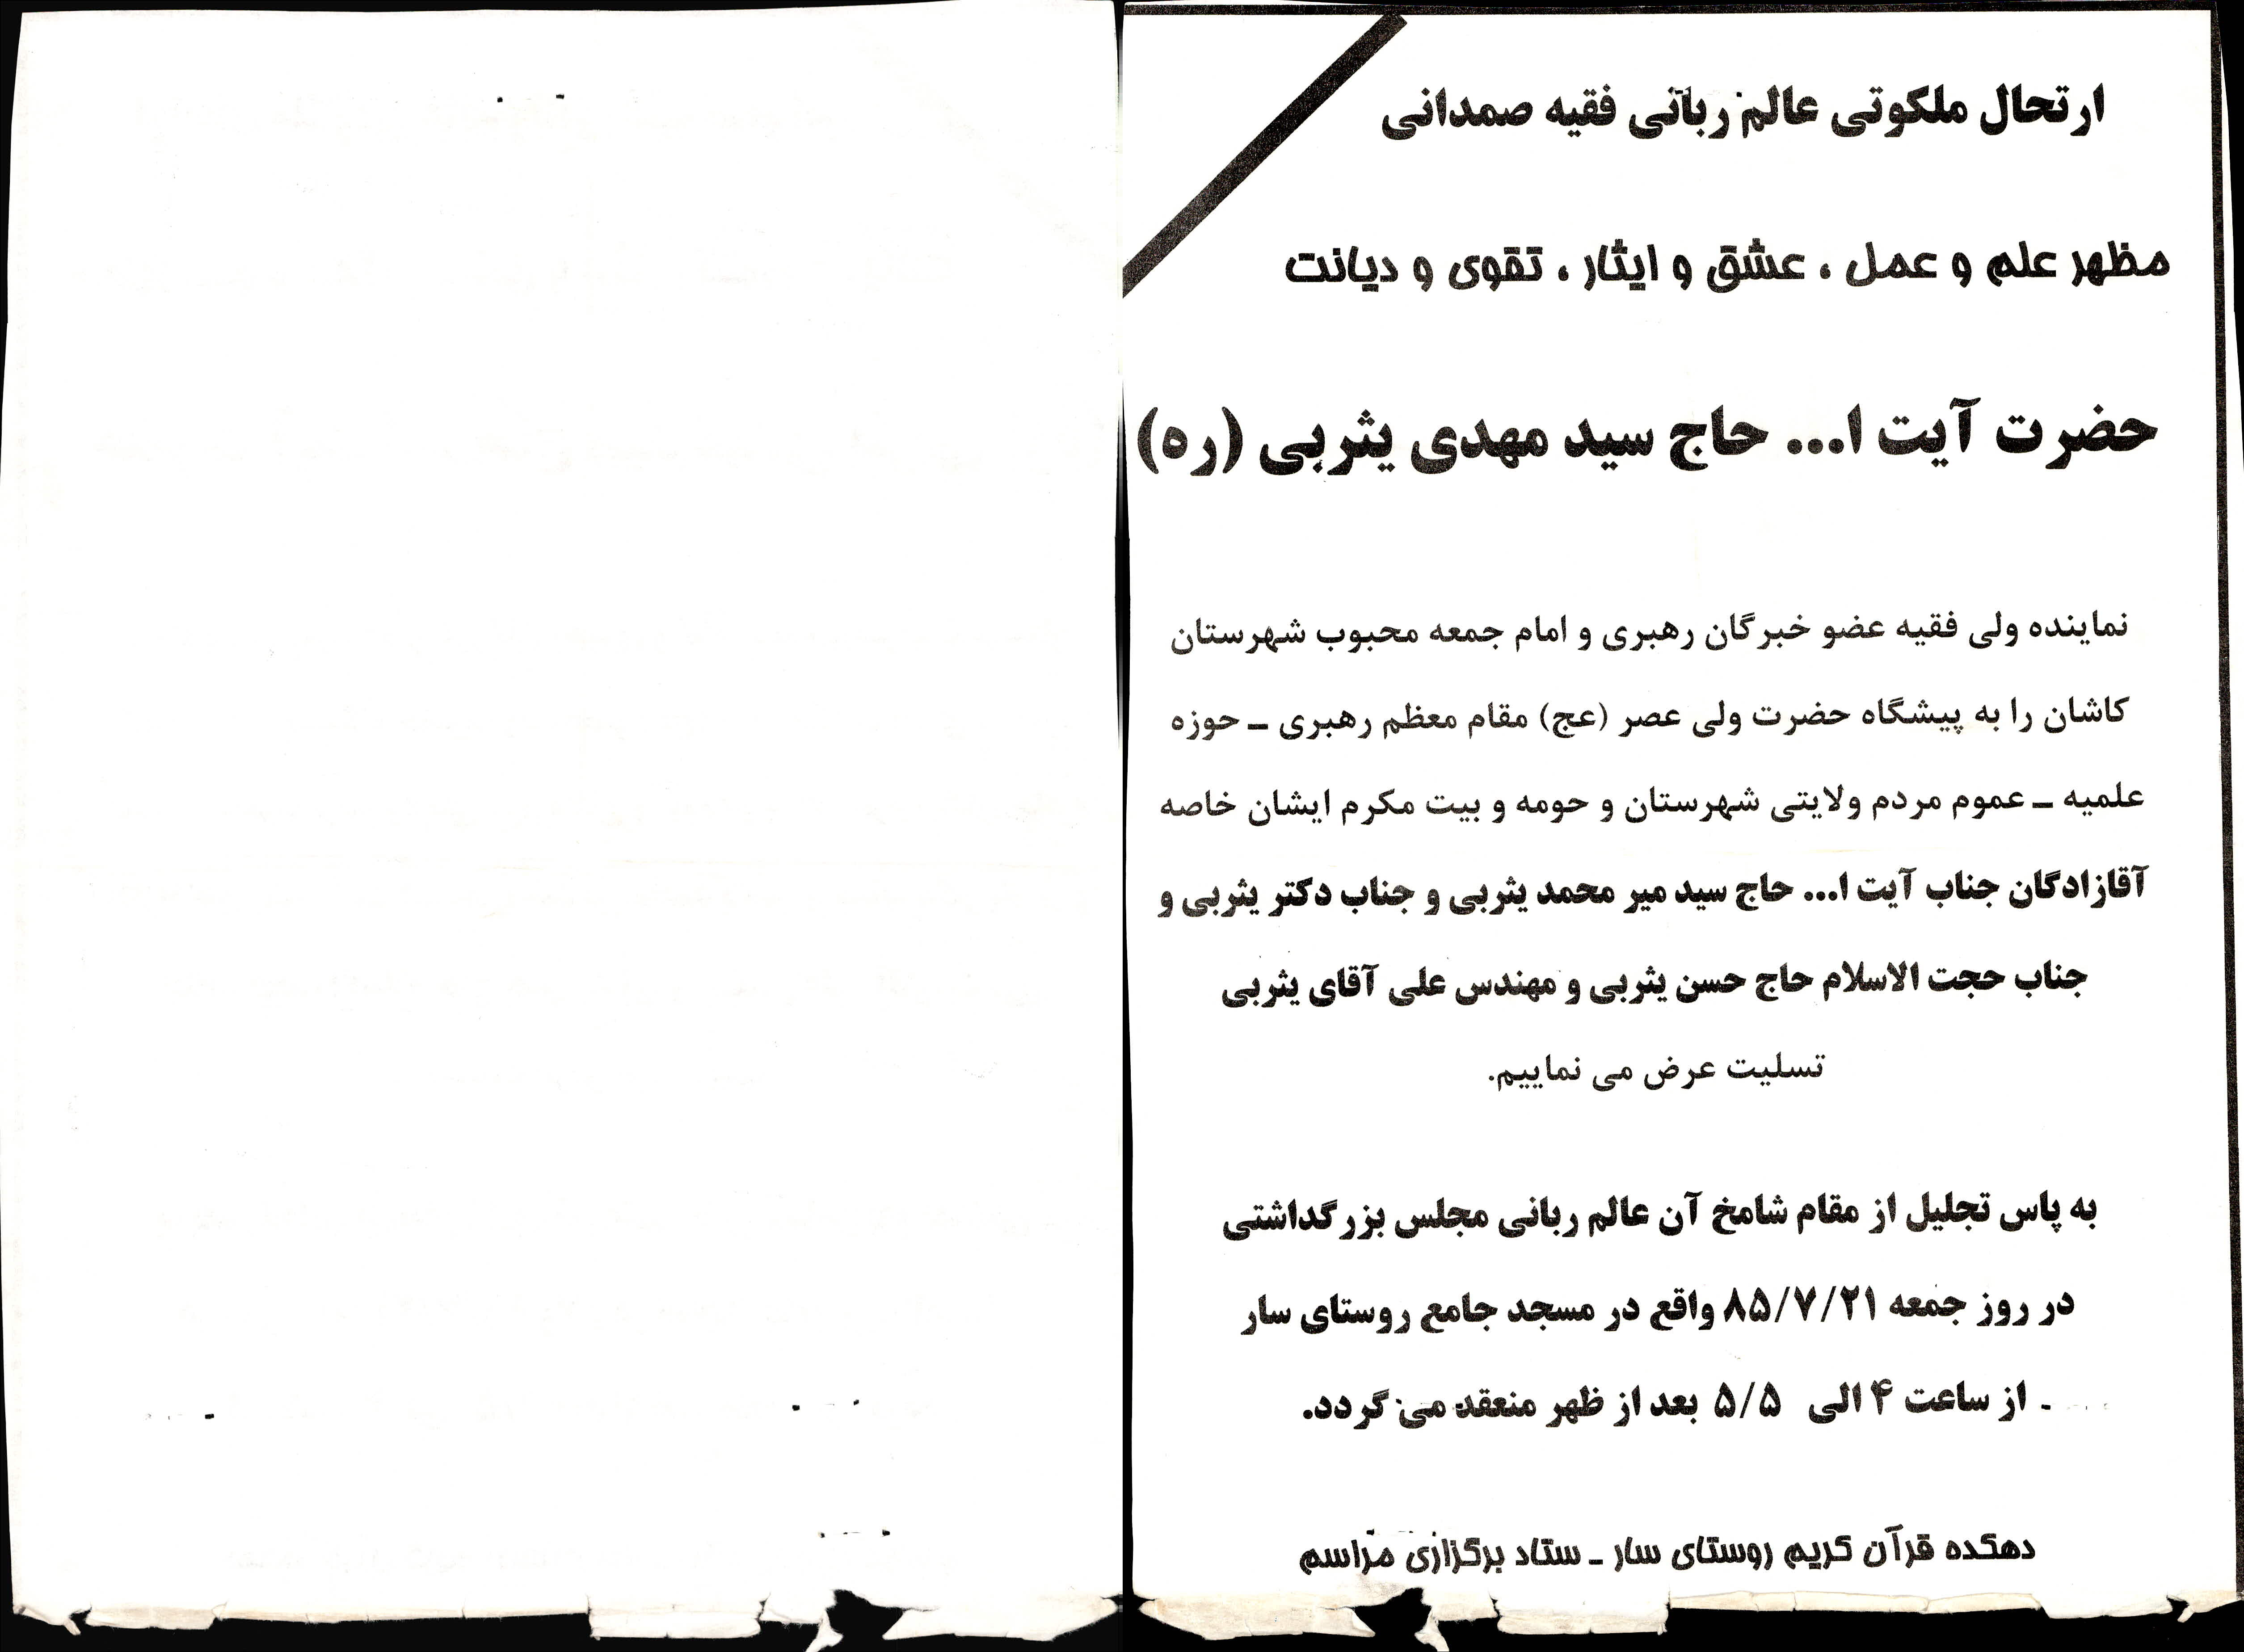 ارتحال ملکوتی عالم ربانی فقیه صمدانی
مظهر علم و عمل ، عشق و ایثار ، تقوی و دیانت
حضرت آیت ا... حاج سید مهدی یثربی (ره)
نماینده ولی فقیه عضو خبرگان رهبری و امام جمعه محبوب شهرستان
کاشان را به پیشگاه حضرت ولی عصر (عج) مقام معظم رهبری ـ حوزه
علمیه ـ عموم مردم ولایتی شهرستان و حومه و بیت مکرم ایشان خاصه
آقازادگان جناب آیت ا... حاج سید میر محمد یثربی و جناب دکتر یثربی و
جناب حجت الاسلام حاج حسن یثربی و مهندس علی آقای یثربی
تسلیت عرض می نماییم.
به پاس تجلیل از مقام شامخ آن عالم ربانی مجلس بزرگداشتی
در روز جمعه ۸۵/۷/۲۱ واقع در مسجد جامع روستای سار
ـ از ساعت ۴ الی ۵/۵ بعد از ظهر منعقد می گردد.
دهکده قرآن کریم روستای سار ـ ستاد برگزاری مراسم